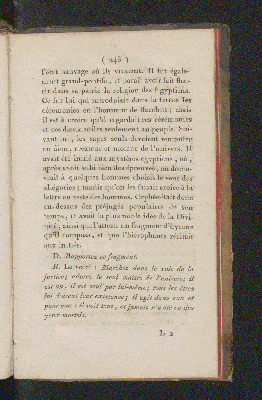 ( 245 )
l'état sauvage où ils vivaient. Il fut égale-
ment grand-pontife. Il paraît avoir fait fleu-
rir dans sa patrie la religion des Égyptiens.
Ce fut lui qui introduisit dans la Grèce les
cérémonies en l'honneur de Bacchus ; mais
il est à croire qu'il regardait ces cérémonies
et ces dieux utiles seulement au peuple. Sui-
vant lui, les sages seuls devaient connaître
un dieu, créateur et moteur de l'univers. Il
avait été initié aux mystères égyptiens, où,
après avoir subi bien des épreuves, on décou-
vrait à quelques hommes choisis le sens des
allégories ; tandis qu'on les faisait croire à la
lettre au reste des hommes. Orphée était donc
au-dessus des préjugés populaires de son
temps, et avait la plus noble idée de la Divi-
nité, ainsi que l'atteste un fragment d'hymne
qu'il composa, et que l'hiérophante récitait
aux initiés.
D. Rapportez ce fragment.
R. Le voici : Marchez dans la voie de la
justice ; adorez le seul maître de l'univers ; il
est un. Il est seul par lui-même ; tous les êtres
lui doivent leur existence ; il agit dans eux et
par eux : il voit tout, et jamais n'a été vu des
yeux mortels.
L 2